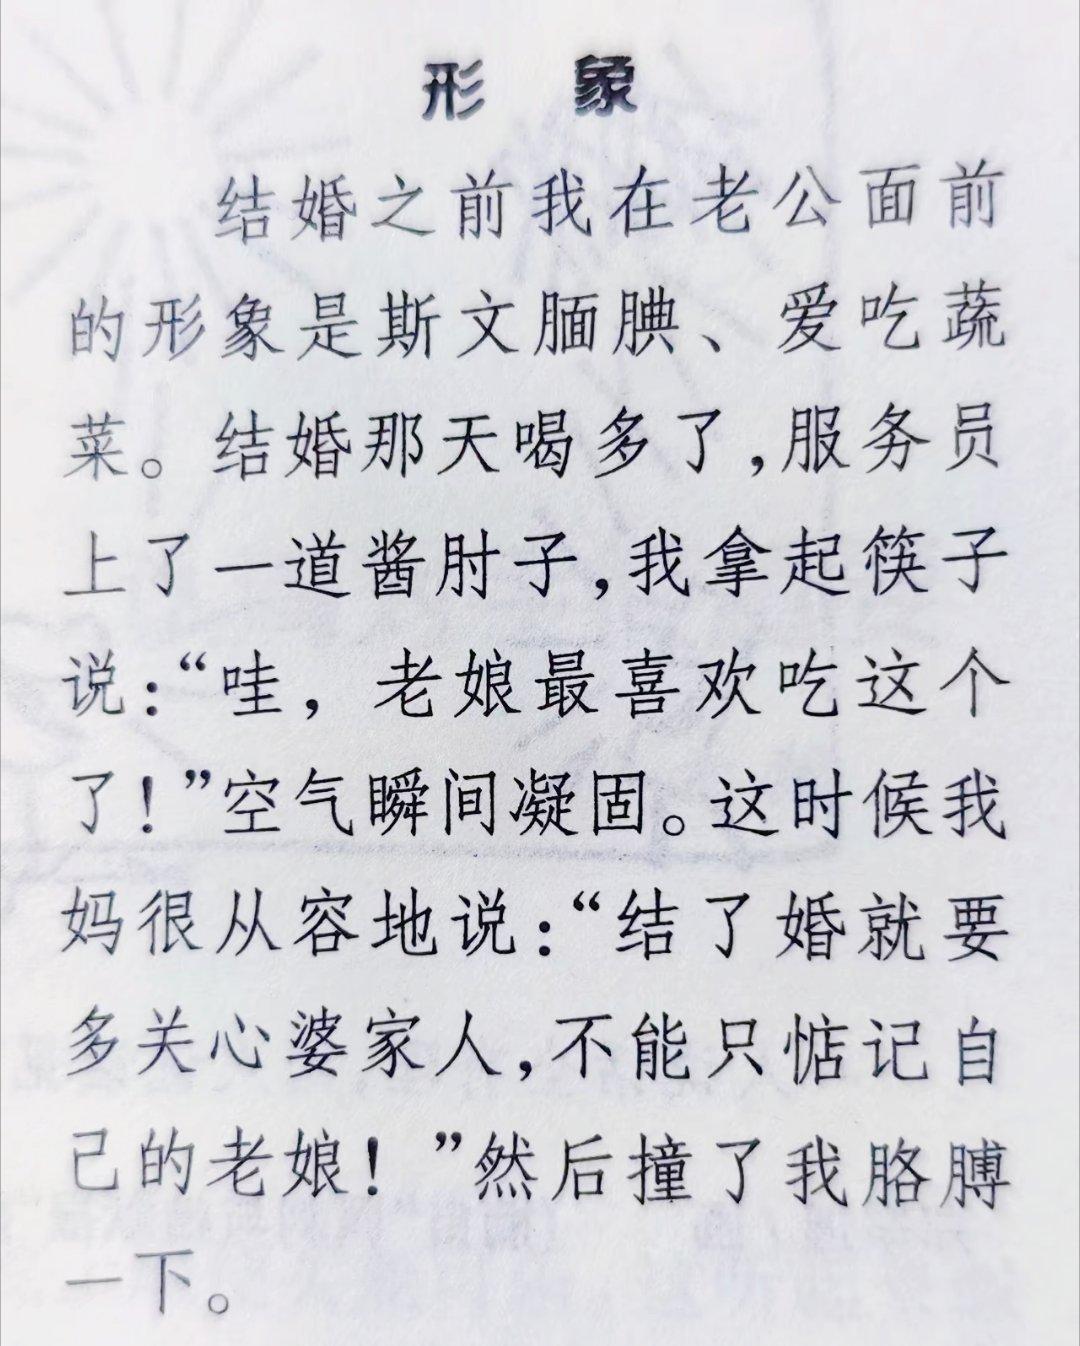 形 象
结婚之前我在老公面前
的形象是斯文腼腆、爱吃蔬
菜。结婚那天喝多了,服务员
上了一道酱肘子,我拿起筷子
说:“哇，老娘最喜欢吃这个
了!”空气瞬间凝固。这时候我
妈很从容地说:“结了婚就要
多关心婆家人,不能只惦记自
己的老娘!”然后撞了我胳膊
一下。